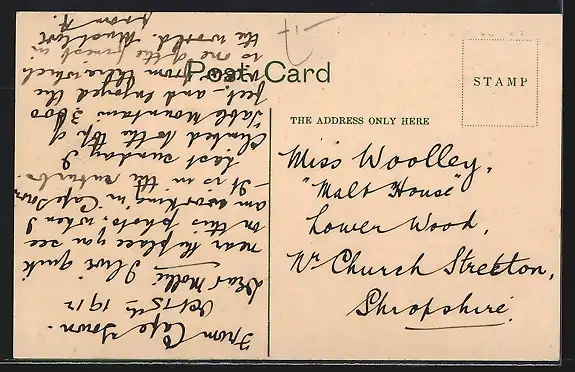 Post Card
THE ADDRESS ONLY HERE
STAMP
Miss Woolley,
"Malt House"
Lower Wood,
Nr Church Stretton,
Shropshire.
From Cape Town.
Oct 15th 1912
Dear Mollie I live quite
near the place you see
on this photo, when I
am working in Cape Town
- It is in the suburbs.
Last Sunday I
Climbed to the top of
Table Mountain 3600
feet - and enjoyed the
view from there which
is one of the finest in
the world. Much love
from A.